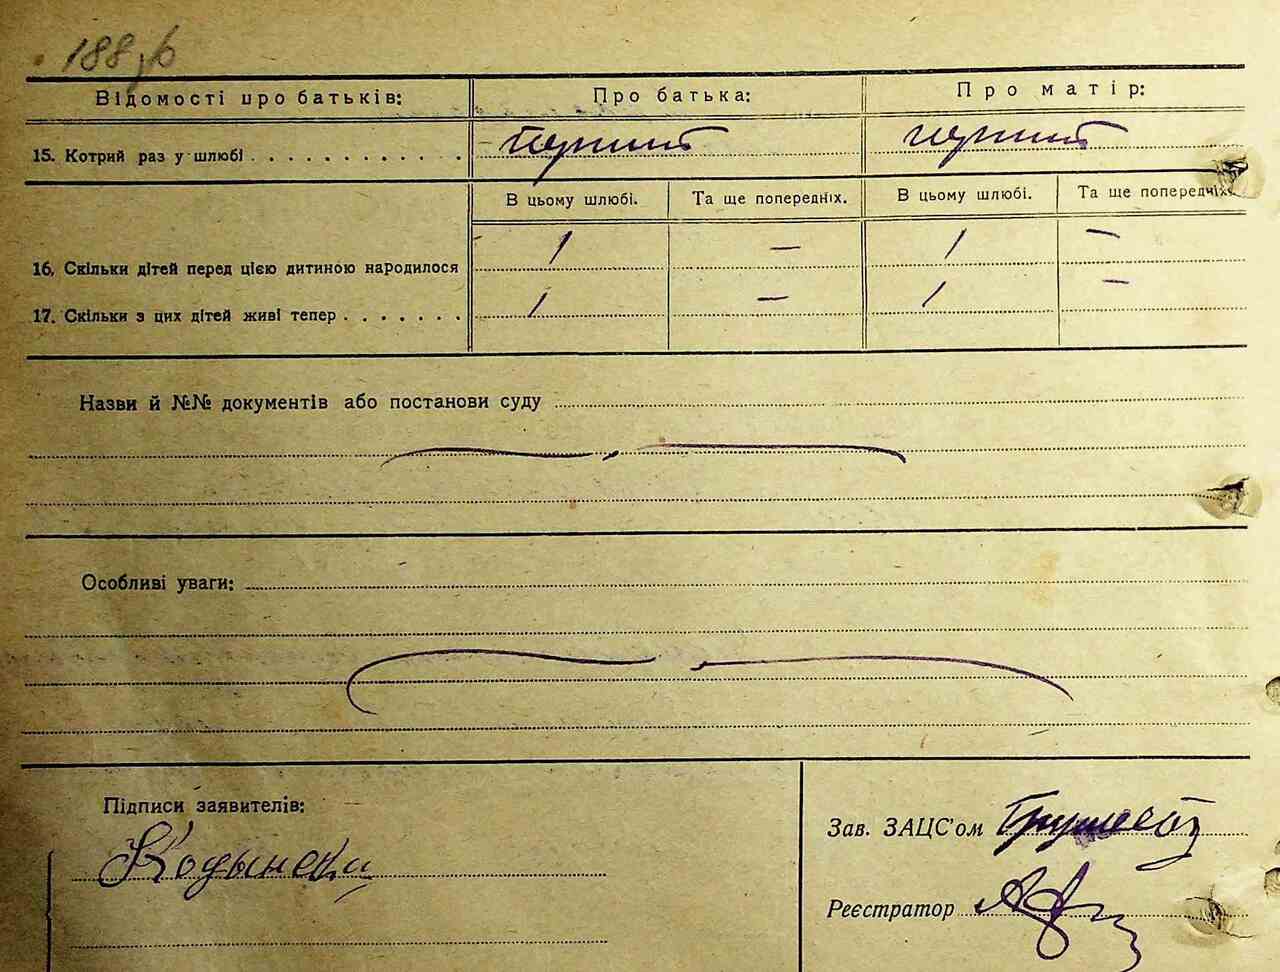 188зв
Відомості про батьків: Про батька: Про матір:
15. Котрий раз у шлюбі . . . . . . . . . . . . первий первий
В цьому шлюбі. Та ще попередніх. В цьому шлюбі. Та ще попередніх.
16. Скільки дітей перед цією дитиною народилося 1 — 1 —
17. Скільки з цих дітей живі тепер . . . . . . . 1 — 1 —
Назви й №№ документів або постанови суду
Особливі уваги:
Підписи заявителів:
Зав. ЗАЦС'ом
Кодынски
Реєстратор